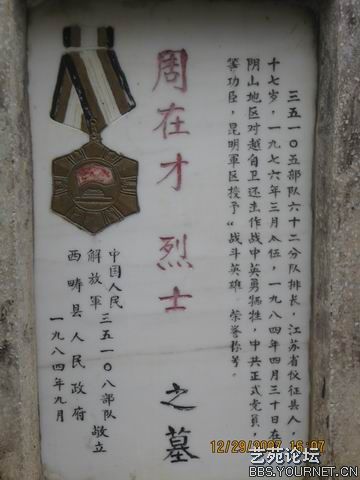 三五一〇五部队六十二分队排长，江苏省仪征县人，
十七岁，一九七六年三月入伍，一九八四年四月三十日在
阴山地区对越自卫还击作战中英勇牺牲，中共正式党员，
等功臣，昆明軍区授予“战斗英雄”荣誉称号。
周在才 烈士 之墓
中国人民
解放軍 三五一〇八部队 敬立
西畴县人民政府
一九八四年九月
12/29/2007 16:07
艺苑论坛
BBS.YOURNET.CN